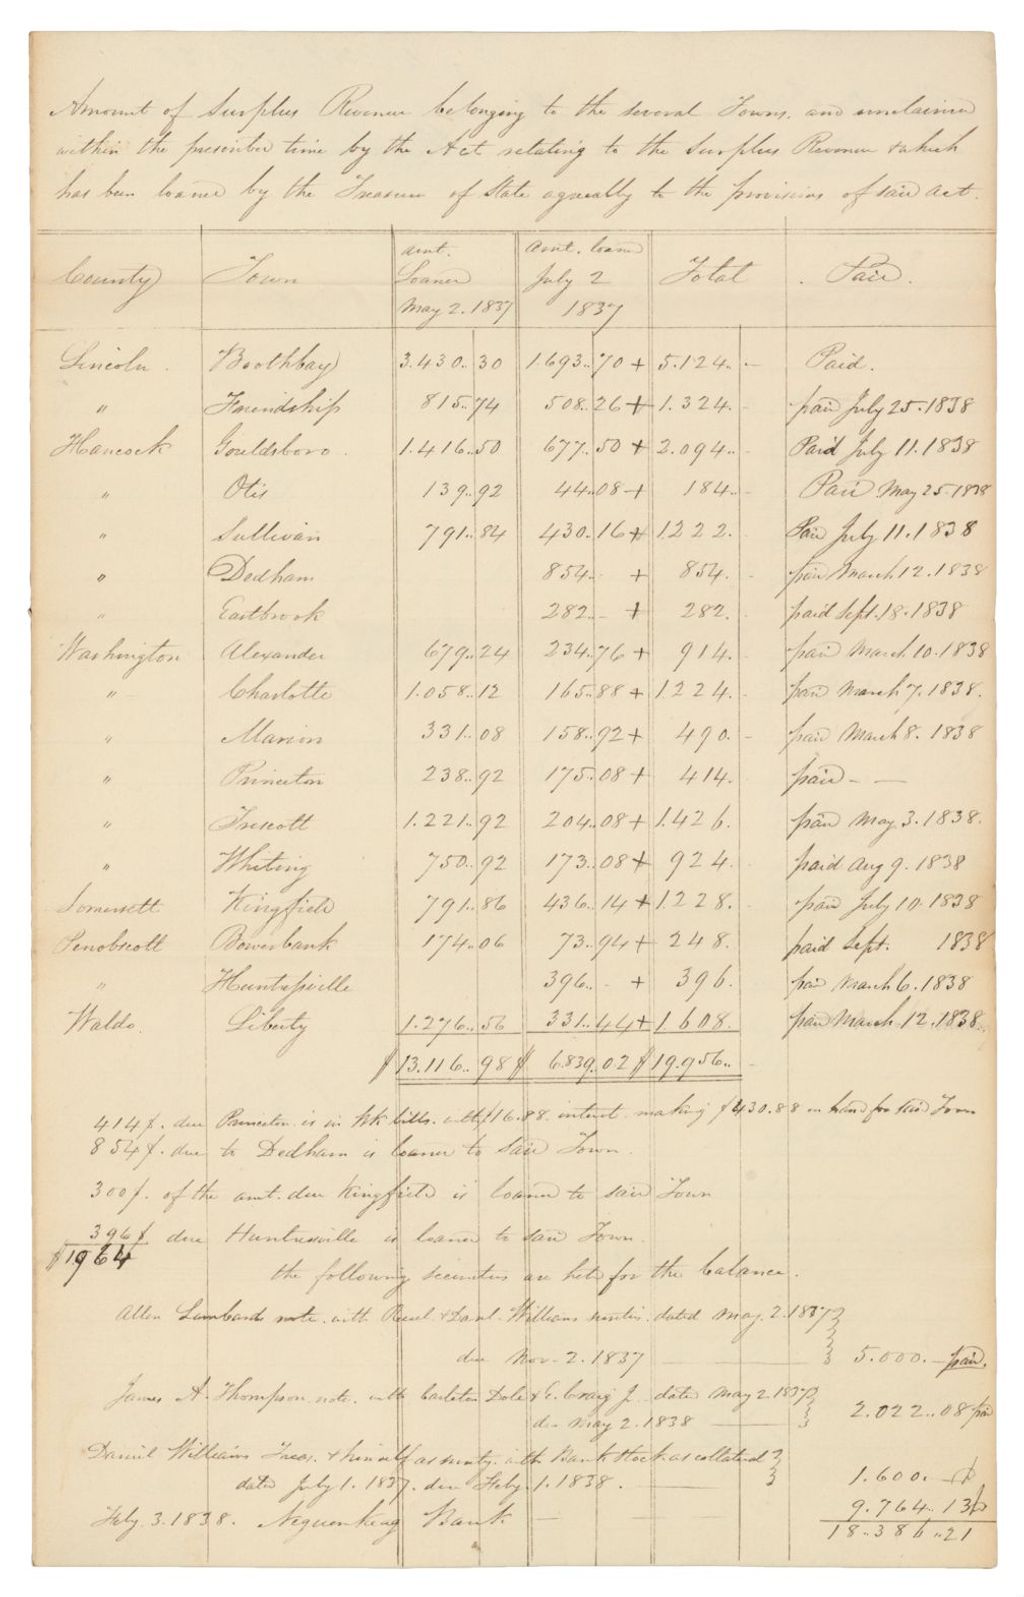 Amount of Surplus Revenue belonging to the several Towns. and unclaimed
within the prescribed time by the Act relating to the Surplus Revenue & which
has been loaned by the Treasurer of State agreeably to the provisions of said Act.
County Town amt. Loaned May 2. 1837 amt. loaned July 2 1837 Total Paid.
Lincoln Boothbay 3.430..30 1.693..70 + 5.124.. Paid.
" Friendship 815..74 508..26 + 1.324. paid July 25. 1838
Hancock Gouldsboro. 1.416..50 677..50 + 2.094.. Paid July 11. 1838
" Otis 139..92 44..08 + 184.. Paid May 25. 1838
" Sullivan 791..84 430..16 + 1222. Paid July 11. 1838
" Dedham 854.. + 854. paid March 12. 1838
" Eastbrook 282.. + 282. paid Sept. 18. 1838
Washington Alexander 679..24 234..76 + 914. paid March 10. 1838
" Charlotte 1.058..12 165..88 + 1224. paid March 7. 1838.
" Marion 331..08 158..92 + 490. paid March 8. 1838
" Princeton 238..92 175..08 + 414. paid - -
" Trescott 1.221..92 204..08 + 1.426. paid May 3. 1838.
" Whiting 750..92 173..08 + 924. paid Aug 9. 1838
Somersett Kingfield 791..86 436..14 + 1.228. paid July 10. 1838
Penobscott Bowerbank 174..06 73..94 + 248. paid Sept. 1838
" Huntressville 396.. + 396. paid March 6. 1838
Waldo. Liberty 1.276..56 331..44 + 1608. paid March. 12. 1838.
$13.116..98 $ 6.839..02 $19.956..
414$. due Princeton is in bk bills. with $16.88 interest making $430.88 on hand for said Town
854$. due to Dedham is loaned to said Town.
300$. of the amt. due Kingfield is loaned to said Town
396$ due Huntressville is loaned to said Town.
$1964
the following securities are held for the balance.
Allen Lambards note. with Reuel & Danl. Williams sureties. dated May. 2. 1837
due Nov. 2. 1837 5.000. paid.
James A. Thompson note. with Carleton Dole & E. Craig Jr. dated May 2. 1837
due May 2. 1838 2.022..08 paid
Daniel Williams Treas. & himself as surety. with Bank Stock as collateral
dated July 1. 1837. due Feby. 1. 1838. 1.600.
Feby. 3. 1838. Neguemkeag Bank 9.764..13
18..386..21